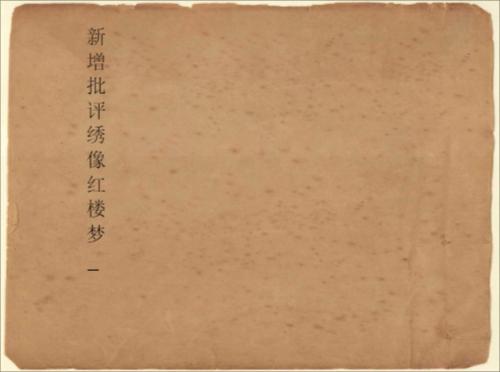 新增批评绣像红楼梦 一